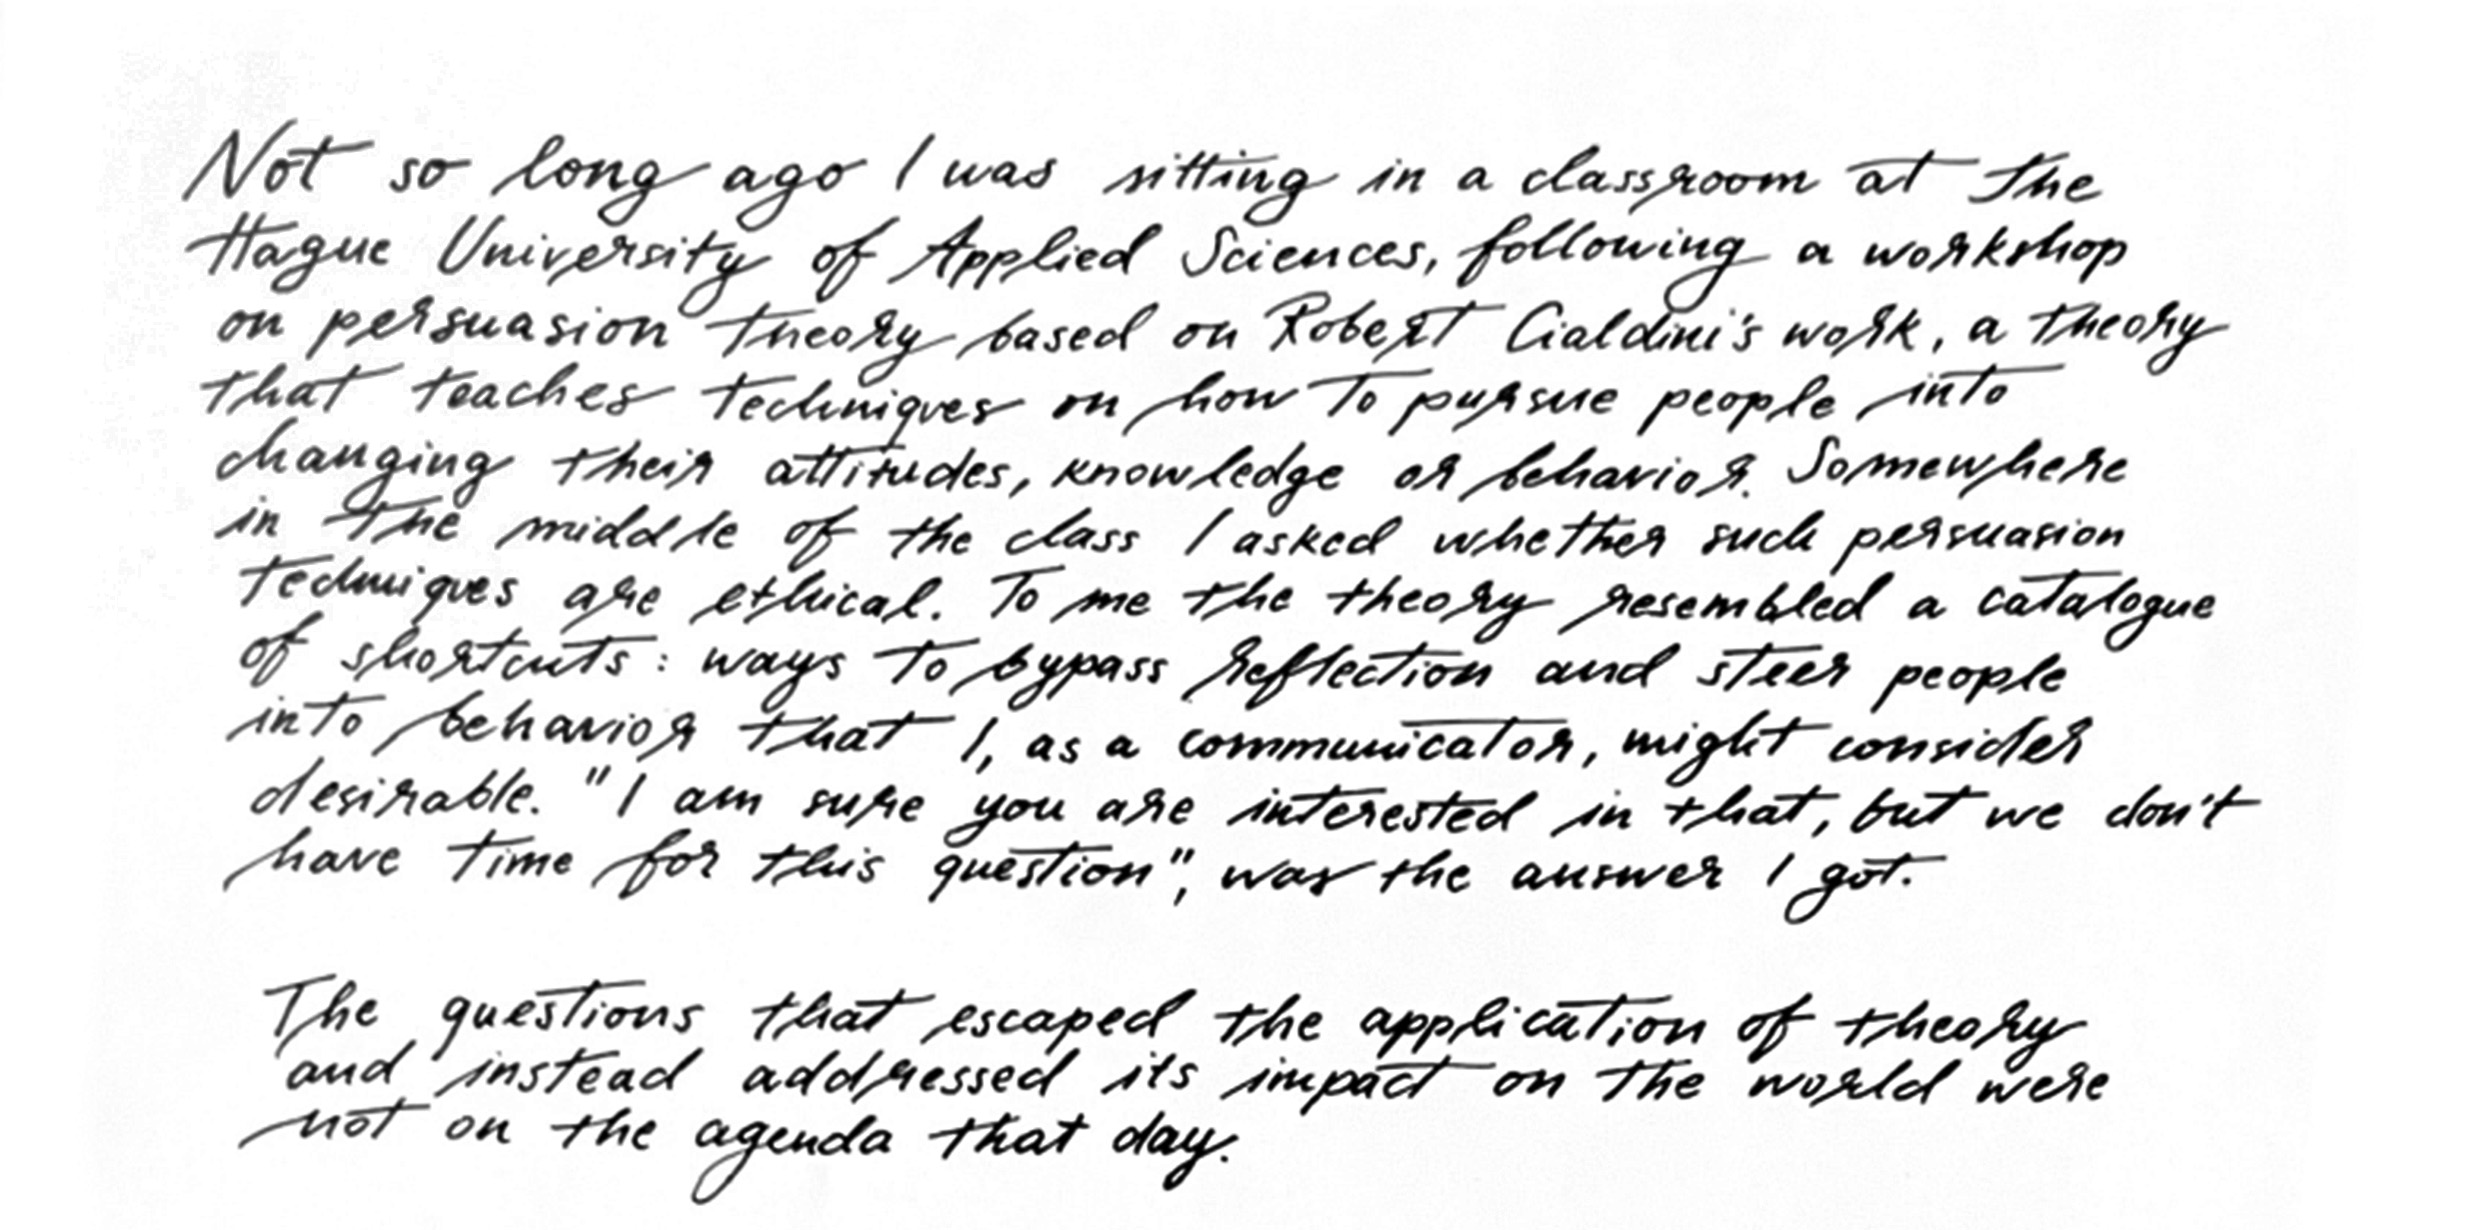 Not so long ago I was sitting in a classroom at the
Hague University of Applied Sciences, following a workshop
on persuasion theory based on Robert Cialdini's work, a theory
that teaches techniques on how to pursue people into
changing their attitudes, knowledge or behavior. Somewhere
in the middle of the class I asked whether such persuasion
techniques are ethical. To me the theory resembled a catalogue
of shortcuts: ways to bypass reflection and steer people
into behavior that I, as a communicator, might consider
desirable. "I am sure you are interested in that, but we don't
have time for this question", was the answer I got.
The questions that escaped the application of theory
and instead addressed its impact on the world were
not on the agenda that day.